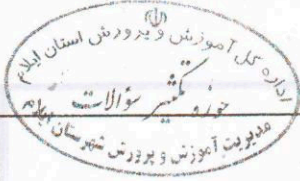 اداره کل آموزش و پرورش استان ایلام
حوزه تکثیر سؤالات
مدیریت آموزش و پرورش شهرستان ایلام